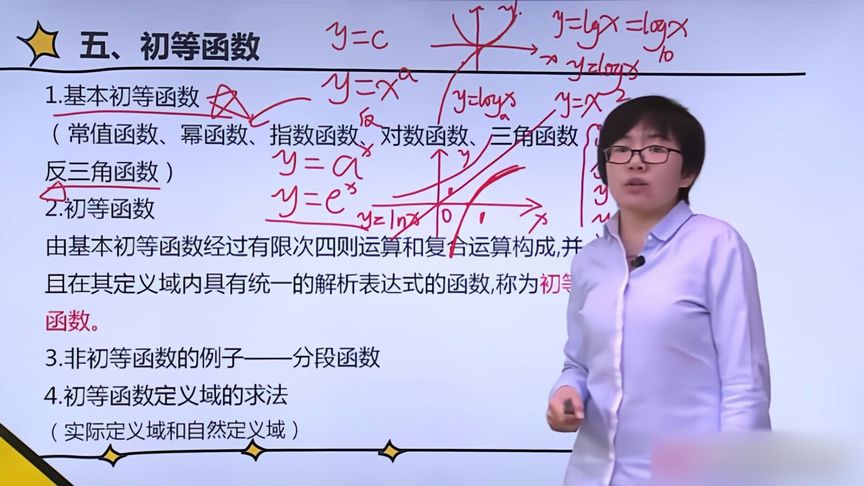 五、初等函数
y=c
y=lgx=log₁₀x
y=logx
y=xᵃ
y=logₐx
y=x²
1.基本初等函数
（常值函数、幂函数、指数函数、对数函数、三角函数
反三角函数）
y=aˣ
y=eˣ
y=lnx
y
0
1
x
2.初等函数
由基本初等函数经过有限次四则运算和复合运算构成,并
且在其定义域内具有统一的解析表达式的函数,称为初等
函数。
3.非初等函数的例子——分段函数
4.初等函数定义域的求法
（实际定义域和自然定义域）